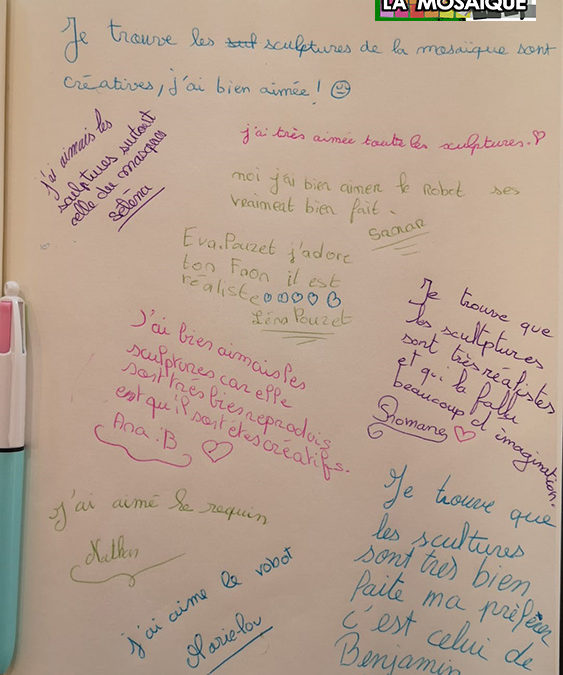 LA MOSAÏQUE
Je trouve les sculptures de la mosaïque sont
créatives, j'ai bien aimée !
j'ai très aimée toute les sculptures.
j'ai aimais les
sculptures surtout
celle du masques
Soléna
moi j'ai bien aimer le Robot ses
vraiment bien fait.
Samar
Eva.Pouzet j'adore
ton Faon il est
réaliste
Léna Pouzet
Je trouve que
les sculttures
sont très réalistes
et qui la fallu
beaucoup d'imagination.
Romane
J'ai bien aimais les
sculptures car elle
sont très bien reproduis
est qu'il sont êtes créatifs.
Ana :B
j'ai aimé le requin
Nathan
Je trouve que
les scultures
sont tres bien
faite ma préférer
c'est celui de
Benjamin
j'ai aime le robot
Marielou